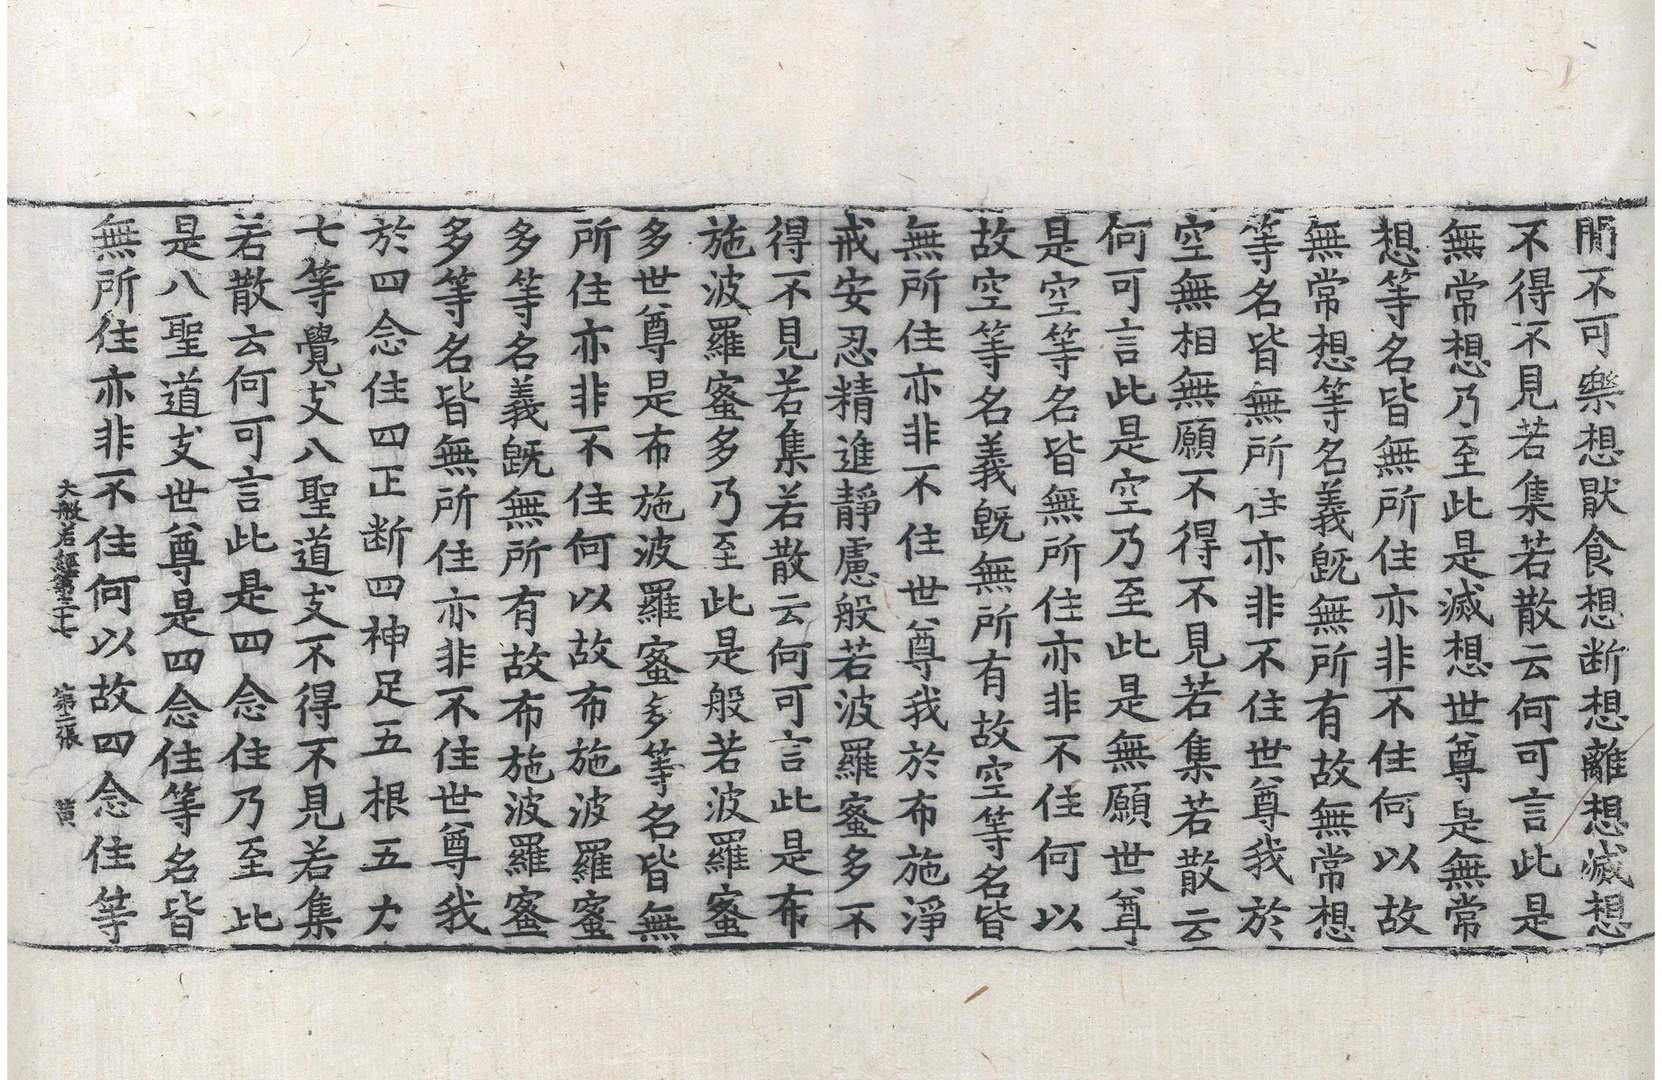 閒不可樂想猒食想断想離想滅想
不得不見若集若散云何可言此是
無常想乃至此是滅想世尊是無常
想等名皆無所住亦非不住何以故
無常想等名義旣無所有故無常想
等名皆無所住亦非不住世尊我於
空無相無願不得不見若集若散云
何可言此是空乃至此是無願世尊
是空等名皆無所住亦非不住何以
故空等名義旣無所有故空等名皆
無所住亦非不住世尊我於布施淨
戒安忍精進靜慮般若波羅蜜多不
得不見若集若散云何可言此是布
施波羅蜜多乃至此是般若波羅蜜
多世尊是布施波羅蜜多等名皆無
所住亦非不住何以故布施波羅蜜
多等名義旣無所有故布施波羅蜜
多等名皆無所住亦非不住世尊我
於四念住四正断四神足五根五力
七等覺支八聖道支不得不見若集
若散云何可言此是四念住乃至此
是八聖道支世尊是四念住等名皆
無所住亦非不住何以故四念住等
大般若經第三十七 第二張 黃